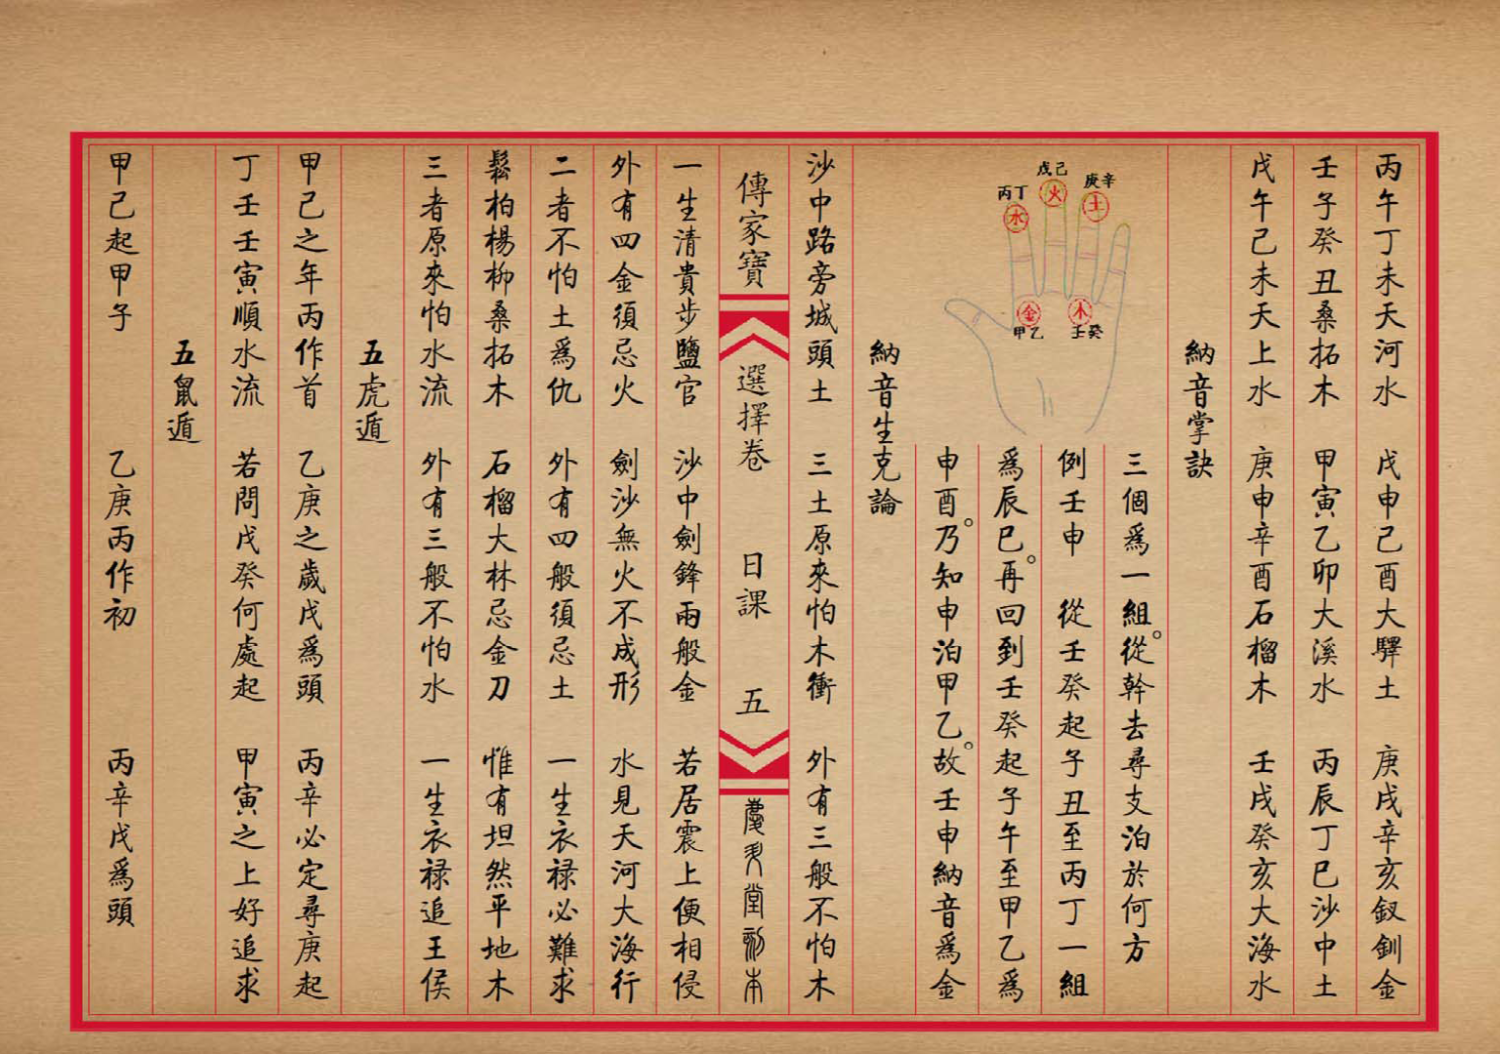 丙午丁未天河水　戊申己酉大驛土　庚戌辛亥釵釧金
壬子癸丑桑拓木　甲寅乙卯大溪水　丙辰丁巳沙中土
戊午己未天上水　庚申辛酉石榴木　壬戌癸亥大海水
納音掌訣
戊己
庚辛
丙丁
火
土
水
金
木
甲乙
壬癸
三個爲一組。從幹去尋支泊於何方
例壬申　從壬癸起子丑至丙丁一組
爲辰巳。再回到壬癸起子午至甲乙爲
申酉。乃知申泊甲乙。故壬申納音爲金
納音生克論
沙中路旁城頭土　三土原來怕木衝　外有三般不怕木
傳家寶　選擇卷　日課　五
堂 本
一生清貴步鹽官　沙中劍鋒兩般金　若居震上便相侵
外有四金須忌火　劍沙無火不成形　水見天河大海行
二者不怕土爲仇　外有四般須忌土　一生衣禄必難求
鬆柏楊柳桑拓木　石榴大林忌金刀　惟有坦然平地木
三者原來怕水流　外有三般不怕水　一生衣禄追王侯
五虎遁
甲己之年丙作首　乙庚之歲戊爲頭　丙辛必定尋庚起
丁壬壬寅順水流　若問戊癸何處起　甲寅之上好追求
五鼠遁
甲己起甲子　乙庚丙作初　丙辛戊爲頭